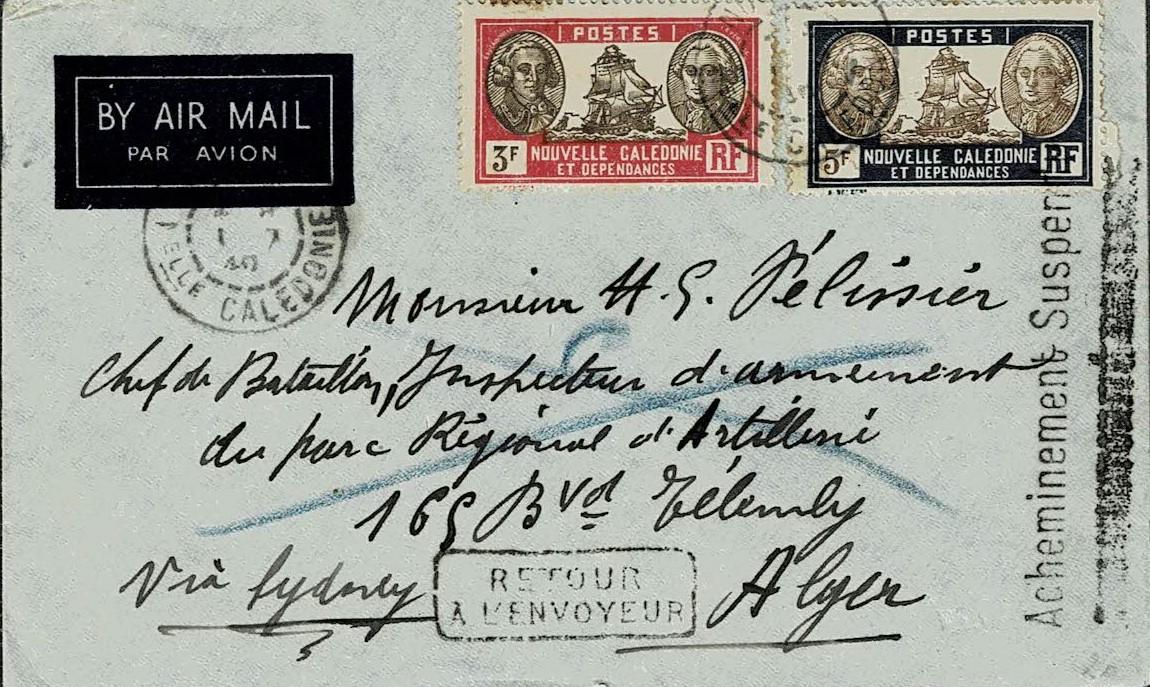 POSTES
3F NOUVELLE CALEDONIE RF
ET DEPENDANCES
POSTES
5F NOUVELLE CALEDONIE RF
ET DEPENDANCES
BY AIR MAIL
PAR AVION
1 7
40
ELLE CALEDONIE
Monsieur H. G. Pélissier
Chef de Bataillon, Inspecteur d'armement
du parc Régional d'Artillerie
165 Bvd Télemly
Via Sydney
Alger
RETOUR
A L'ENVOYEUR
Acheminement Suspen